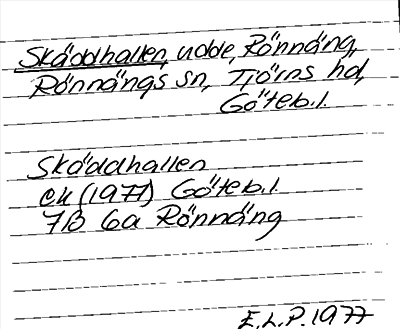 Skäddhallen, udde, Rönnäng,
Rönnängs sn, Tjörns hd,
Göteb. l.
Skäddhallen
ek (1977) Göteb. l.
7B 6a Rönnäng
E.L.P. 1977